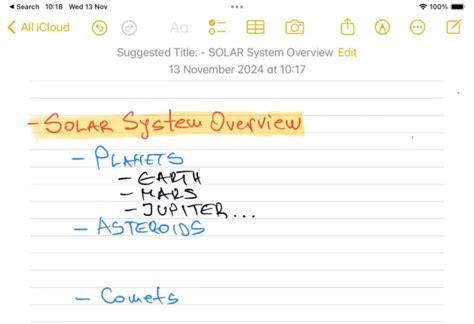 Search 10:18 Wed 13 Nov 100%
All iCloud Aa
Suggested Title: - SOLAR System Overview Edit
13 November 2024 at 10:17
- SOLAR System Overview
- PLANETS
- EARTH
- MARS
- JUPITER...
- ASTEROIDS
- Comets